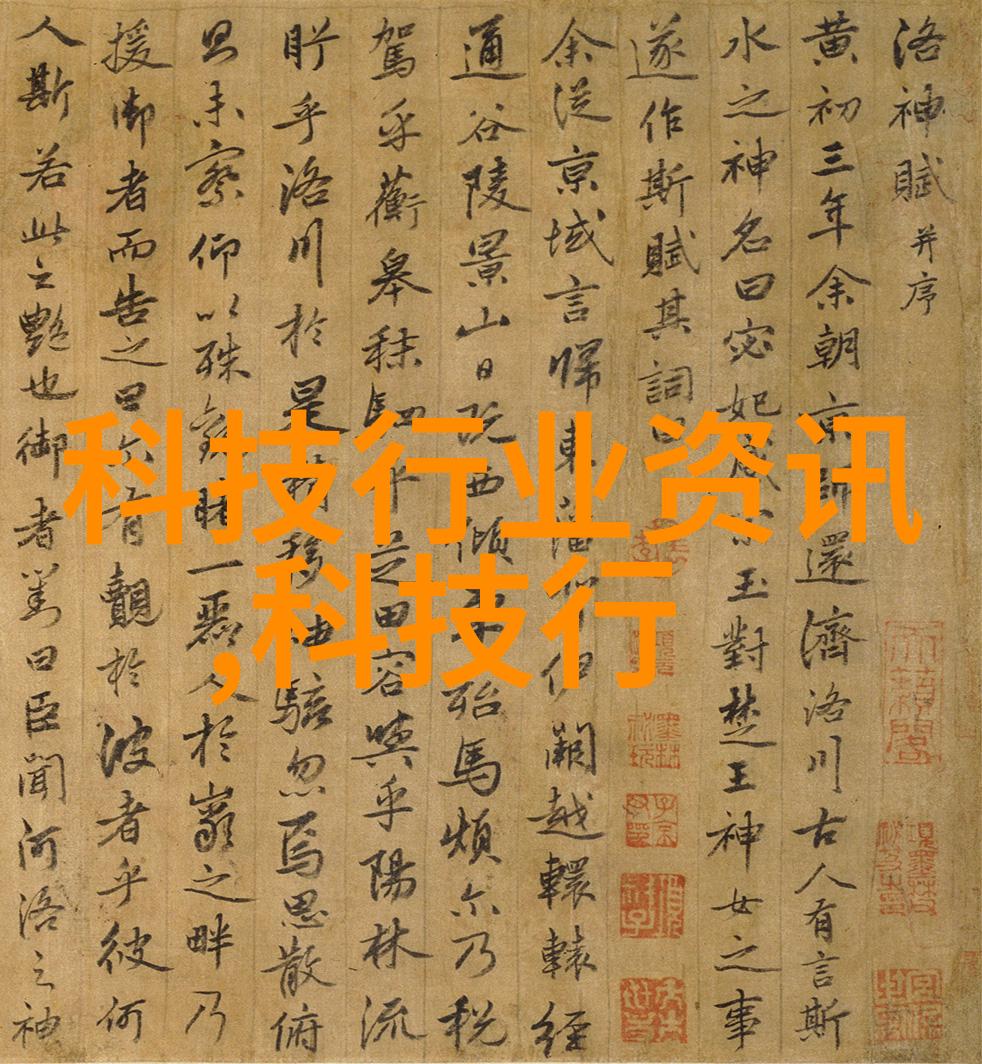 洛神賦并序
黄初三年余朝京師還濟洛川古人有言斯
水之神名曰宓妃感宋玉對楚王神女之事
遂作斯賦其詞曰
余從京域言歸東藩背伊闕越轘轅經
通谷陵景山日既西傾車殆馬煩尒乃税
駕乎蘅皋秣駟乎芝田容與乎陽林流
眄乎洛川於是精移神駭忽焉思散俯
則未察仰以殊觀睹一麗人於巖之畔乃
援御者而告之曰尒有覿於彼者乎彼何
人斯若此之艷也御者對曰臣聞河洛之神
科技行业资讯
,科技行